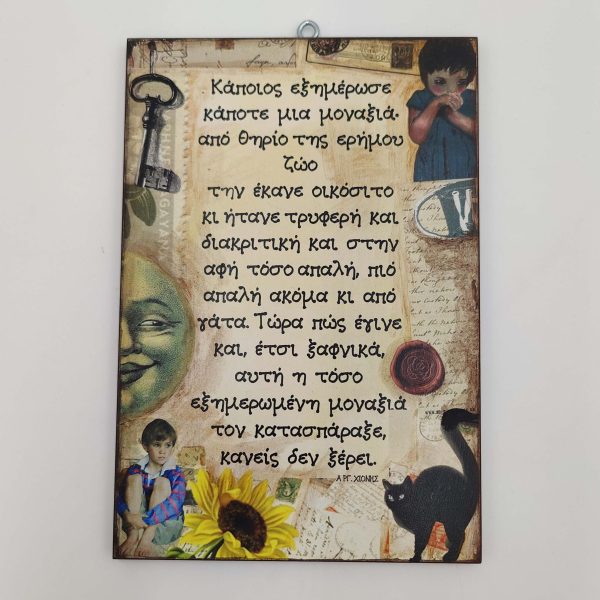 Κάποιος εξημέρωσε
κάποτε μια μοναξιά·
από θηρίο της ερήμου
ζώο
την έκανε οικόσιτο
κι ήτανε τρυφερή και
διακριτική και στην
αφή τόσο απαλή, πιό
απαλή ακόμα κι από
γάτα. Τώρα πώς έγινε
και, έτσι ξαφνικά,
αυτή η τόσο
εξημερωμένη μοναξιά
τον κατασπάραξε,
κανείς δεν ξέρει.
ΑΡΓ. ΧΙΟΝΗΣ